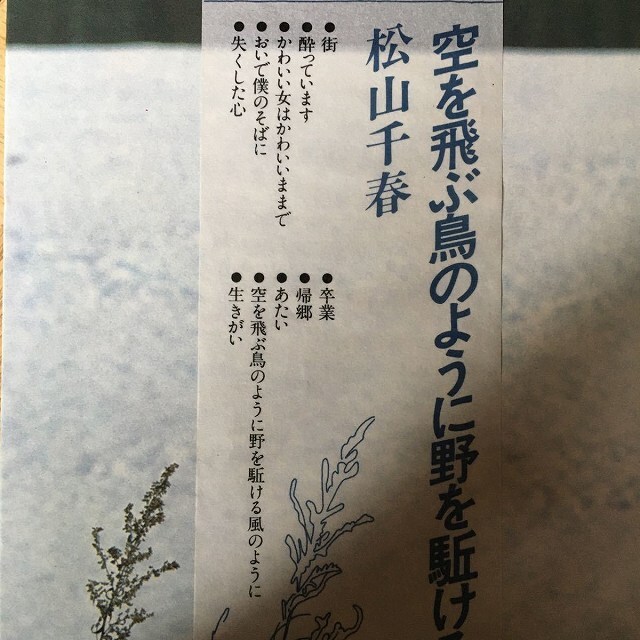 空を飛ぶ鳥のように野を駈ける
松山千春
●街
●酔っています
●かわいい女はかわいいままで
●おいで僕のそばに
●失くした心
●卒業
●帰郷
●あたい
●空を飛ぶ鳥のように野を駈ける風のように
●生きがい